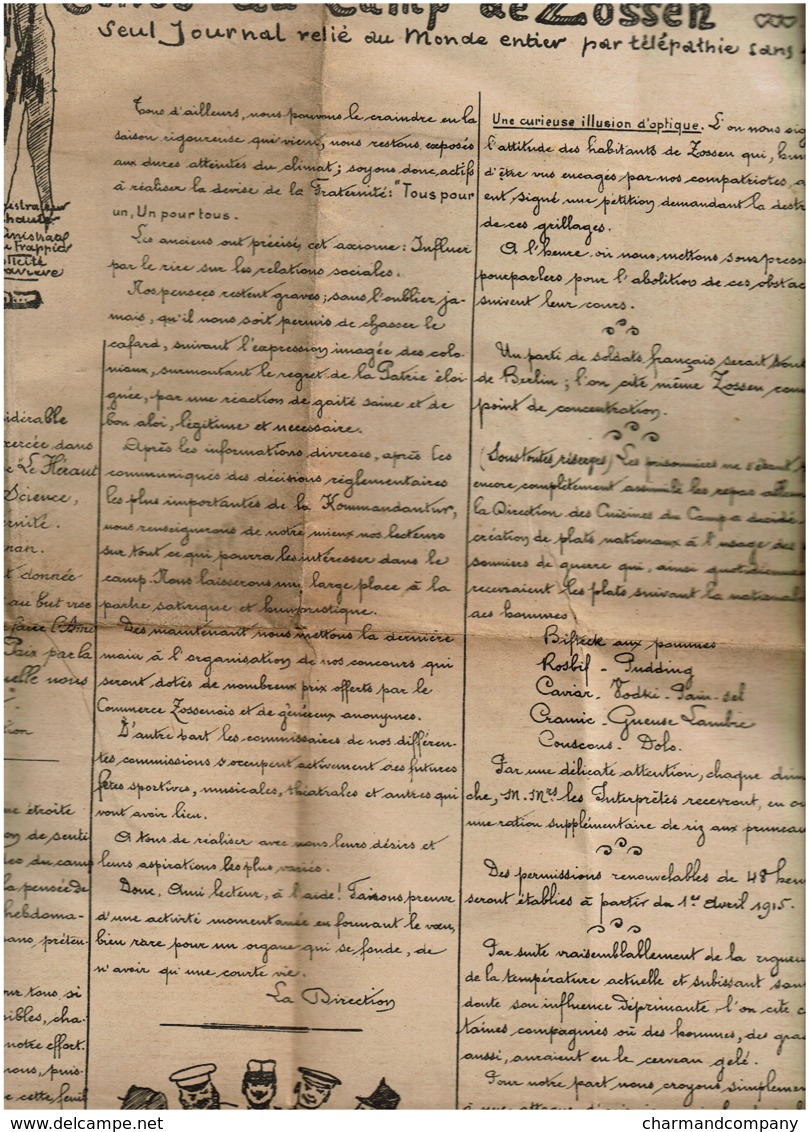 du Camp de Zossen
Seul Journal relié au Monde entier par télépathie sans
Chauly
Frappier
nsidérable
xercée dans
"Le Héraut
Science,
ernité.
t donnée
au but visé
faire l'Ame
Paix par la
uelle nous
tion
me étroite
on de senti
du camp
la pensée de
hebdoma-
sans, préten-
our tous si
sibles, cha-
notre effort.
nous, puis-
cette feuil
Tous d'ailleurs, nous pouvons le craindre en la
saison rigoureuse qui vient, nous restons exposés
aux dures atteintes du climat; soyons donc actifs
à réaliser la devise de la Fraternité: "Tous pour
un, Un pour tous.
Les anciens ont précisé cet axiome: Influer
par le rire sur les relations sociales.
Nos pensées restent graves; sans l'oublier ja-
mais, qu'il nous soit permis de chasser le
cafard, suivant l'expression imagée des colo-
niaux, surmontant le regret de la Patrie éloi
gnée, par une réaction de gaité saine et de
bon aloi, légitime et nécessaire.
Après les informations diverses, après les
communiqués des décisions réglementaires
les plus importantes de la Kommandantur,
nous renseignerons de notre mieux nos lecteurs
sur tout ce qui pourra les intéresser dans le
camp. Nous laisserons une large place à la
partie satirique et humoristique.
Dès maintenant nous mettons la dernière
main à l'organisation de nos concours qui
seront dotés de nombreux prix offerts par le
Commerce Zossenois et de généreux anonymes.
D'autre part les commissaires de nos différen-
tes commissions s'occupent activement des futures
fêtes sportives, musicales, théâtrales et autres qui
vont avoir lieu.
A tous de réaliser avec nous leurs désirs et
leurs aspirations les plus variés.
Donc, Ami lecteur, à l'aide! Faisons preuve
d'une activité momentanée en formant le vœu,
bien rare pour un organe qui se fonde, de
n'avoir qu'une courte vie.
La Direction
Une curieuse illusion d'optique. L'on nous sig
l'attitude des habitants de Zossen qui,
d'être vus encagés par nos compatriotes,
ent, signé une pétition demandant la destr
de ces grillages.
A l'heure où nous mettons sous presse
pourparlers pour l'abolition de ces obstac
suivent leur cours.
Un parti de soldats français serait
de Berlin; l'on cite même Zossen com
point de concentration.
(Sous toutes réserves) Les prisonniers ne s'étant
encore complètement assimilé les repas allem
la Direction des Cuisines du Camp a décidé
création de plats nationaux à l'usage des
sonniers de guerre qui, ainsi quotidienne
recevraient les plats suivant la nationali
des hommes
Bifteck aux pommes
Rosbif - Pudding
Caviar - Vodki - Pain - sel
Cramic - Gueuse Lambic
Couscous - Dolo.
Par une délicate attention, chaque dim
che, M. Mrs les Interprètes recevront, en ou
une ration supplémentaire de riz aux pruneau
Des permissions renouvelables de 48 heu
seront établies à partir du 1er Avril 1915.
Par suite vraisemblablement de la rigueu
de la température actuelle et subissant san
doute son influence déprimante l'on cite c
taines compagnies où des hommes, des gra
aussi, auraient eu le cerveau gelé.
Pour notre part nous croyons simplemen
charmandcompany